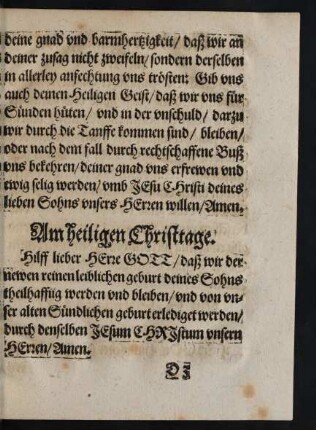 deine gnad vnd barmhertzigkeit/ daß wir an
deiner zusag nicht zweifeln/ sondern derselben
in allerley anfechtung vns trösten: Gib vns
auch deinen Heiligen Geist/ daß wir vns für
Sünden hüten/ vnd in der vnschuld/ darzu
wir durch die Tauffe kommen sind/ bleiben/
oder nach dem fall durch rechtschaffene Buß
vns bekehren/ deiner gnad vns erfrewen vnd
ewig selig werden/ vmb JEsu Christi deines
lieben Sohns vnsers HErren willen/ Amen.
Am heiligen Christtage.
Hilff lieber HErr GOTT/ daß wir der
newen reinen leiblichen geburt deines Sohns
theilhafftig werden vnd bleiben/ vnd von vn-
ser alten Sündlichen geburt erlediget werden/
durch denselben JEsum CHRJstum vnsern
HErren/ Amen.